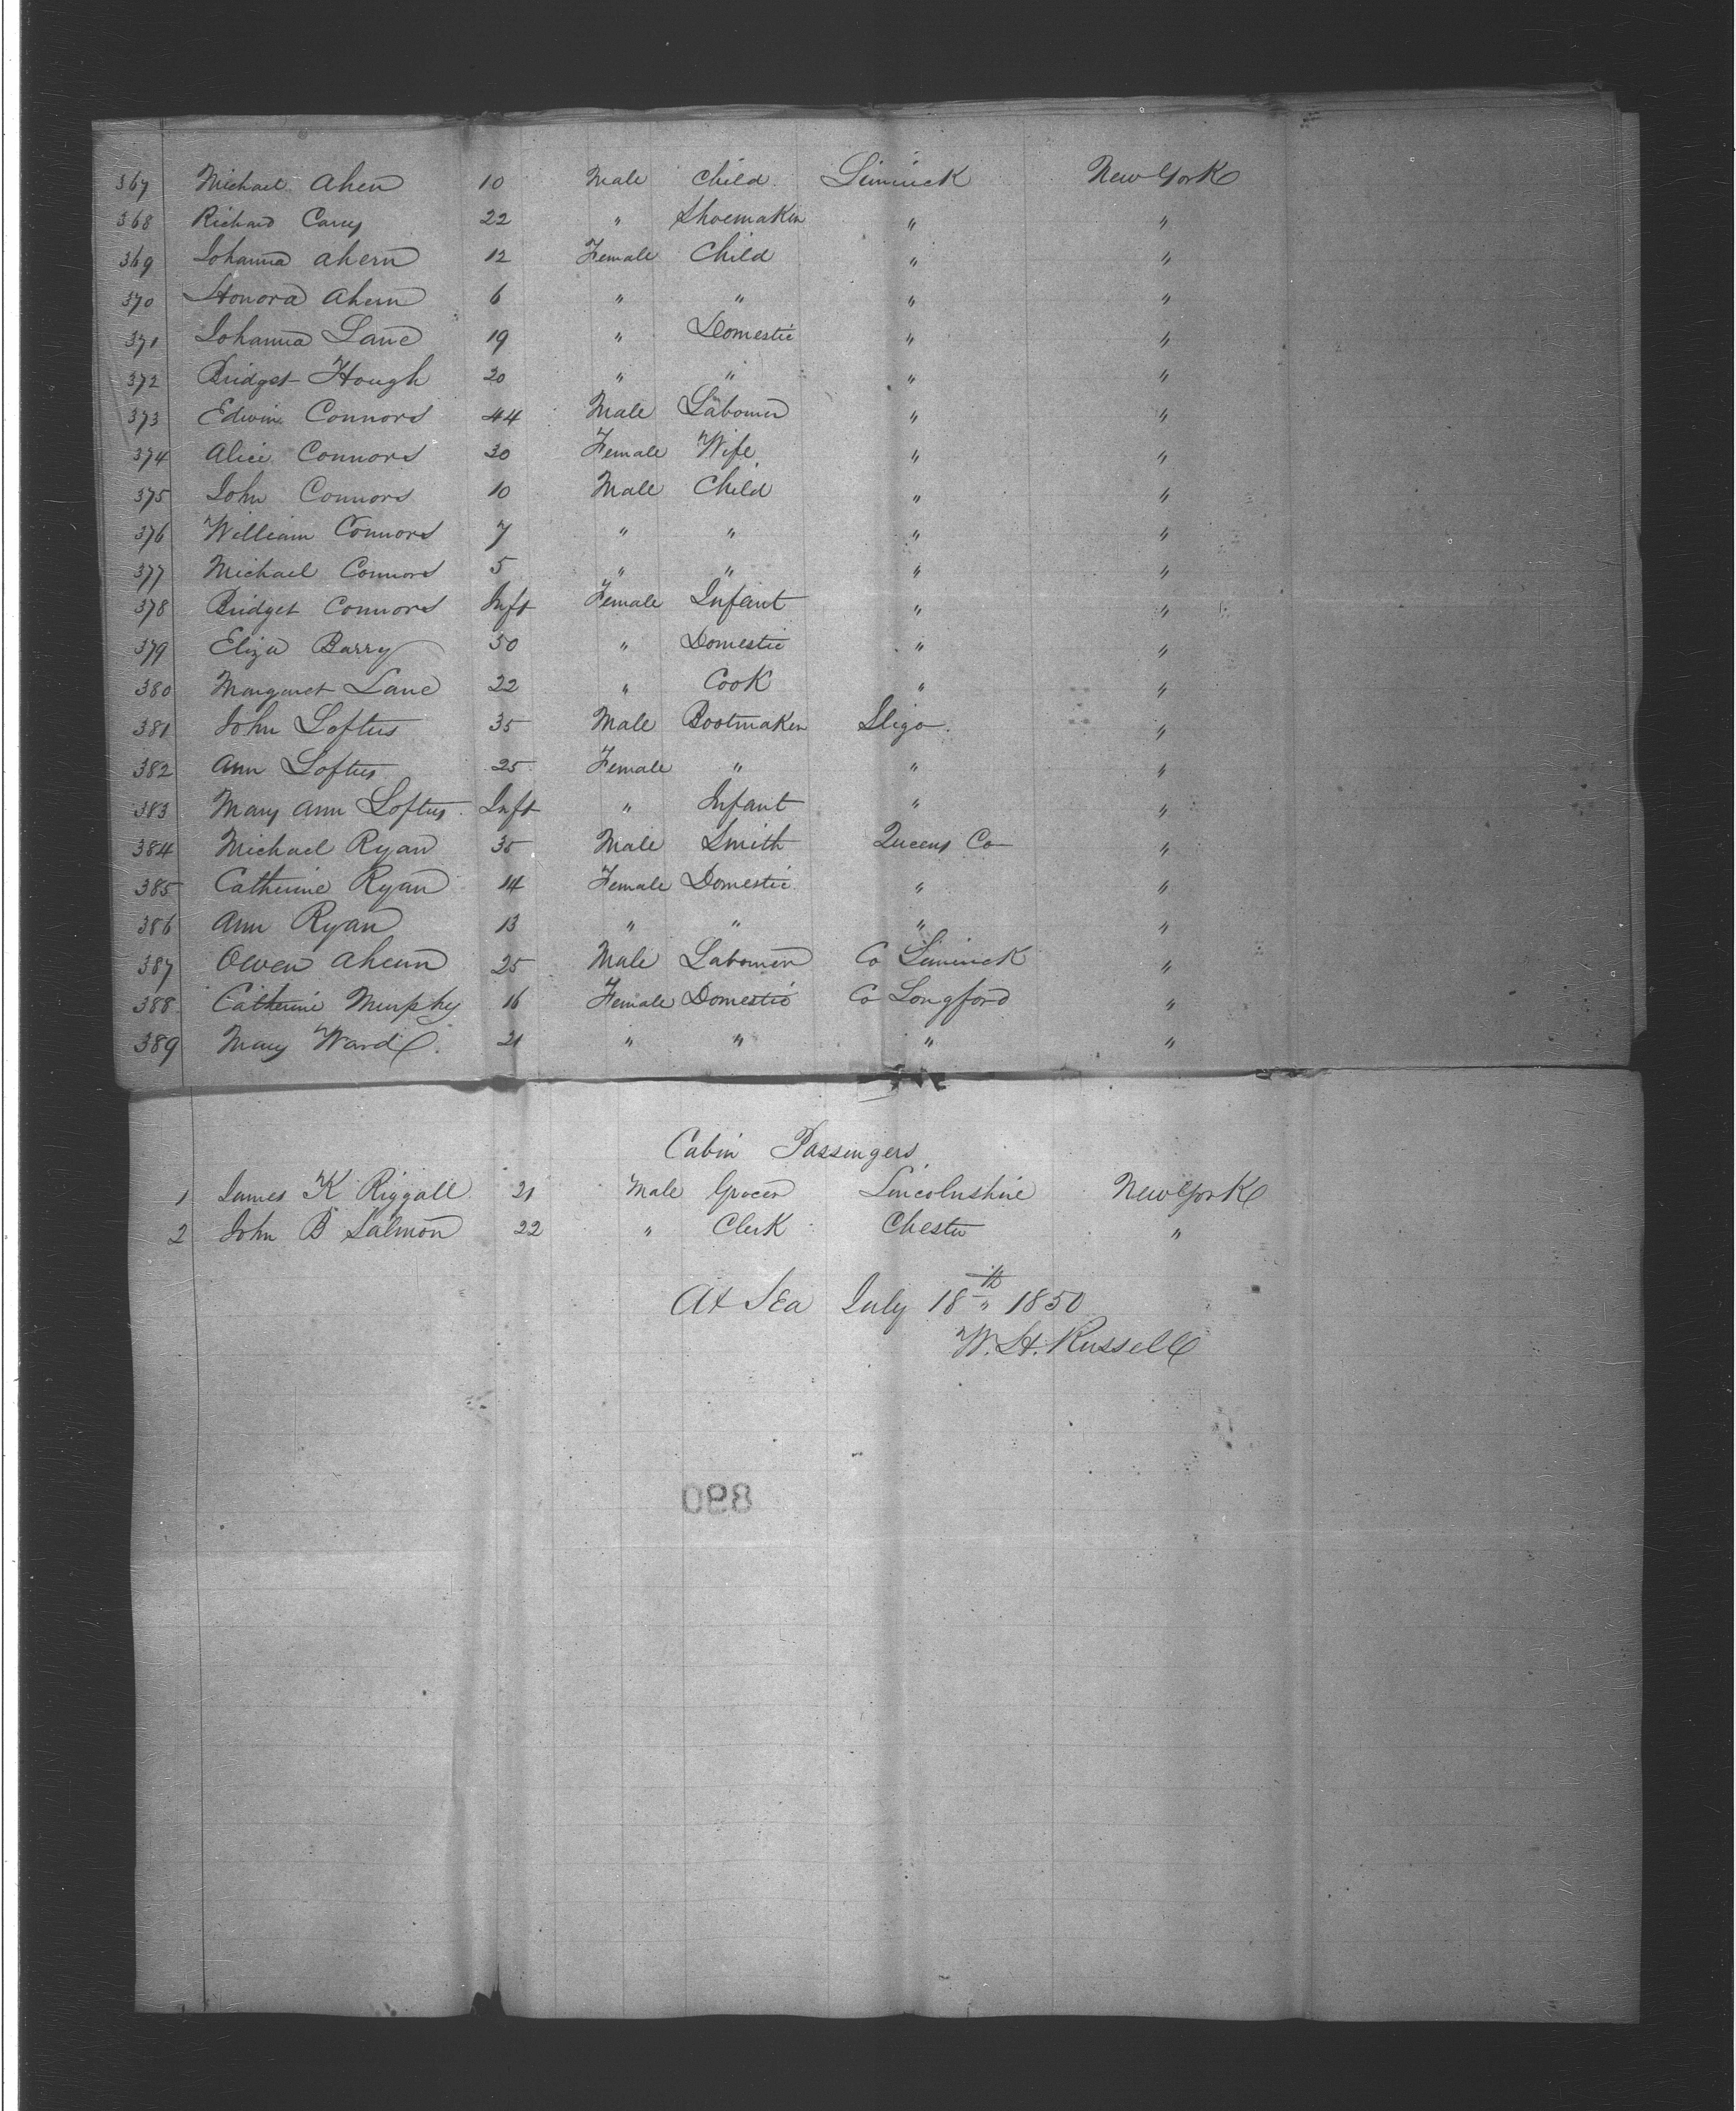 367 Michael Ahern 10 Male Child Limerick New York
368 Richard Carey 22 " Shoemaker " "
369 Johanna Ahern 12 Female Child " "
370 Honora Ahern 6 " " " "
371 Johanna Lane 19 " Domestic " "
372 Bridget Hough 20 " " " "
373 Edwin Connors 44 Male Labourer " "
374 Alice Connors 30 Female Wife " "
375 John Connors 10 Male Child " "
376 William Connors 7 " " " "
377 Michael Connors 5 " " " "
378 Bridget Connors Inft Female Infant " "
379 Eliza Barry 30 " Domestic " "
380 Margaret Lane 22 " Cook " "
381 John Loftus 35 Male Bootmaker Sligo "
382 Ann Loftus 25 Female " " "
383 Mary Ann Loftus Inft " Infant " "
384 Michael Ryan 35 Male Smith Queens Co "
385 Catherine Ryan 14 Female Domestic " "
386 Ann Ryan 13 " " " "
387 Owen Ahern 25 Male Labourer Co Limerick "
388 Catherine Murphy 16 Female Domestic Co Longford "
389 Mary Ward 21 " " " "
Cabin Passengers
1 James K Riggall 21 Male Grocer Lincolnshire New York
2 John B Salmon 22 " Clerk Chester "
At Sea July 18th 1850
W. H. Russell
890